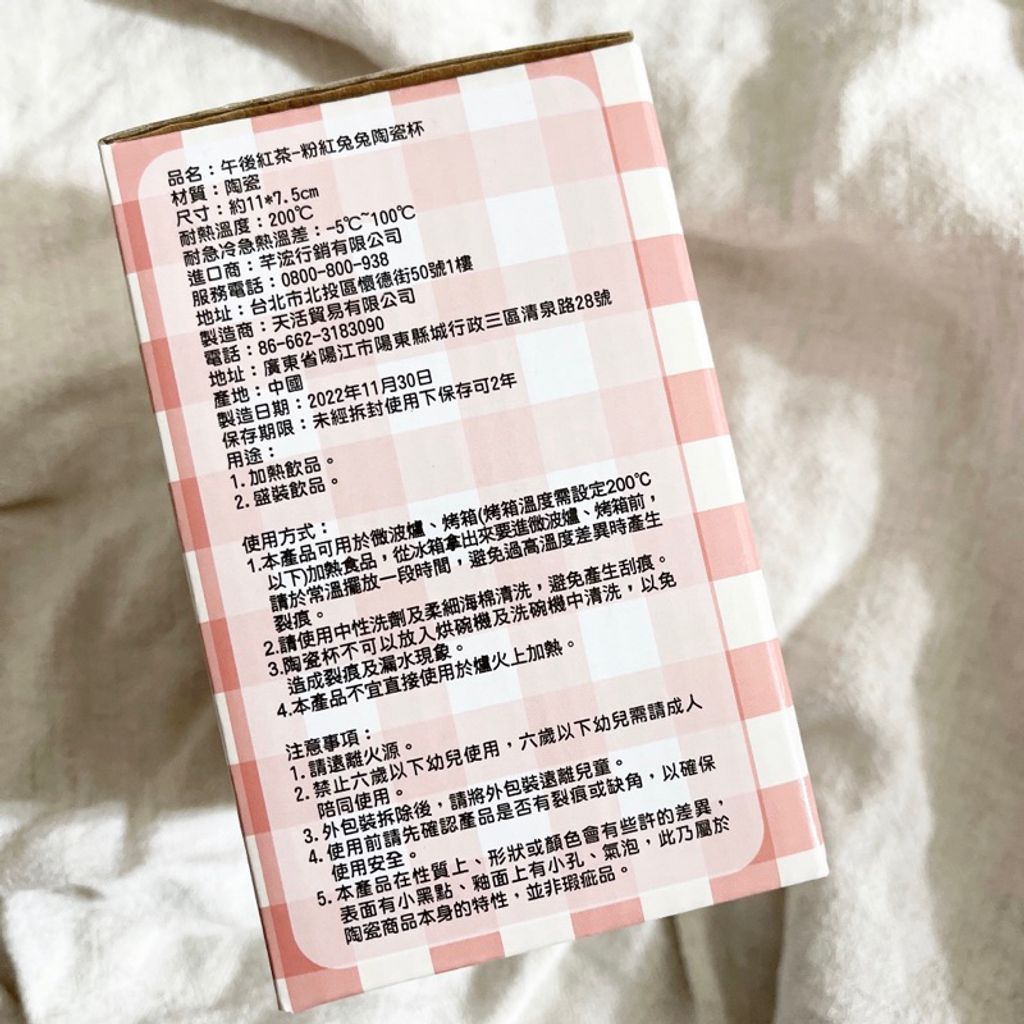 品名：午後紅茶-粉紅兔兔陶瓷杯
材質：陶瓷
尺寸：約11*7.5cm
耐熱溫度：200℃
耐急冷急熱溫差：-5℃~100℃
進口商：芊浤行銷有限公司
服務電話：0800-800-938
地址：台北市北投區懷德街50號1樓
製造商：天活貿易有限公司
電話：86-662-3183090
地址：廣東省陽江市陽東縣城行政三區清泉路28號
產地：中國
製造日期：2022年11月30日
保存期限：未經拆封使用下保存可2年
用途：
1.加熱飲品。
2.盛裝飲品。
使用方式：
1.本產品可用於微波爐、烤箱(烤箱溫度需設定200℃
以下)加熱食品，從冰箱拿出來要進微波爐、烤箱前，
請於常溫擺放一段時間，避免過高溫度差異時產生
裂痕。
2.請使用中性洗劑及柔細海棉清洗，避免產生刮痕。
3.陶瓷杯不可以放入烘碗機及洗碗機中清洗，以免
造成裂痕及漏水現象。
4.本產品不宜直接使用於爐火上加熱。
注意事項：
1.請遠離火源。
2.禁止六歲以下幼兒使用，六歲以下幼兒需請成人
陪同使用。
3.外包裝拆除後，請將外包裝遠離兒童。
4.使用前請先確認產品是否有裂痕或缺角，以確保
使用安全。
5.本產品在性質上、形狀或顏色會有些許的差異，
表面有小黑點、釉面上有小孔、氣泡，此乃屬於
陶瓷商品本身的特性，並非瑕疵品。